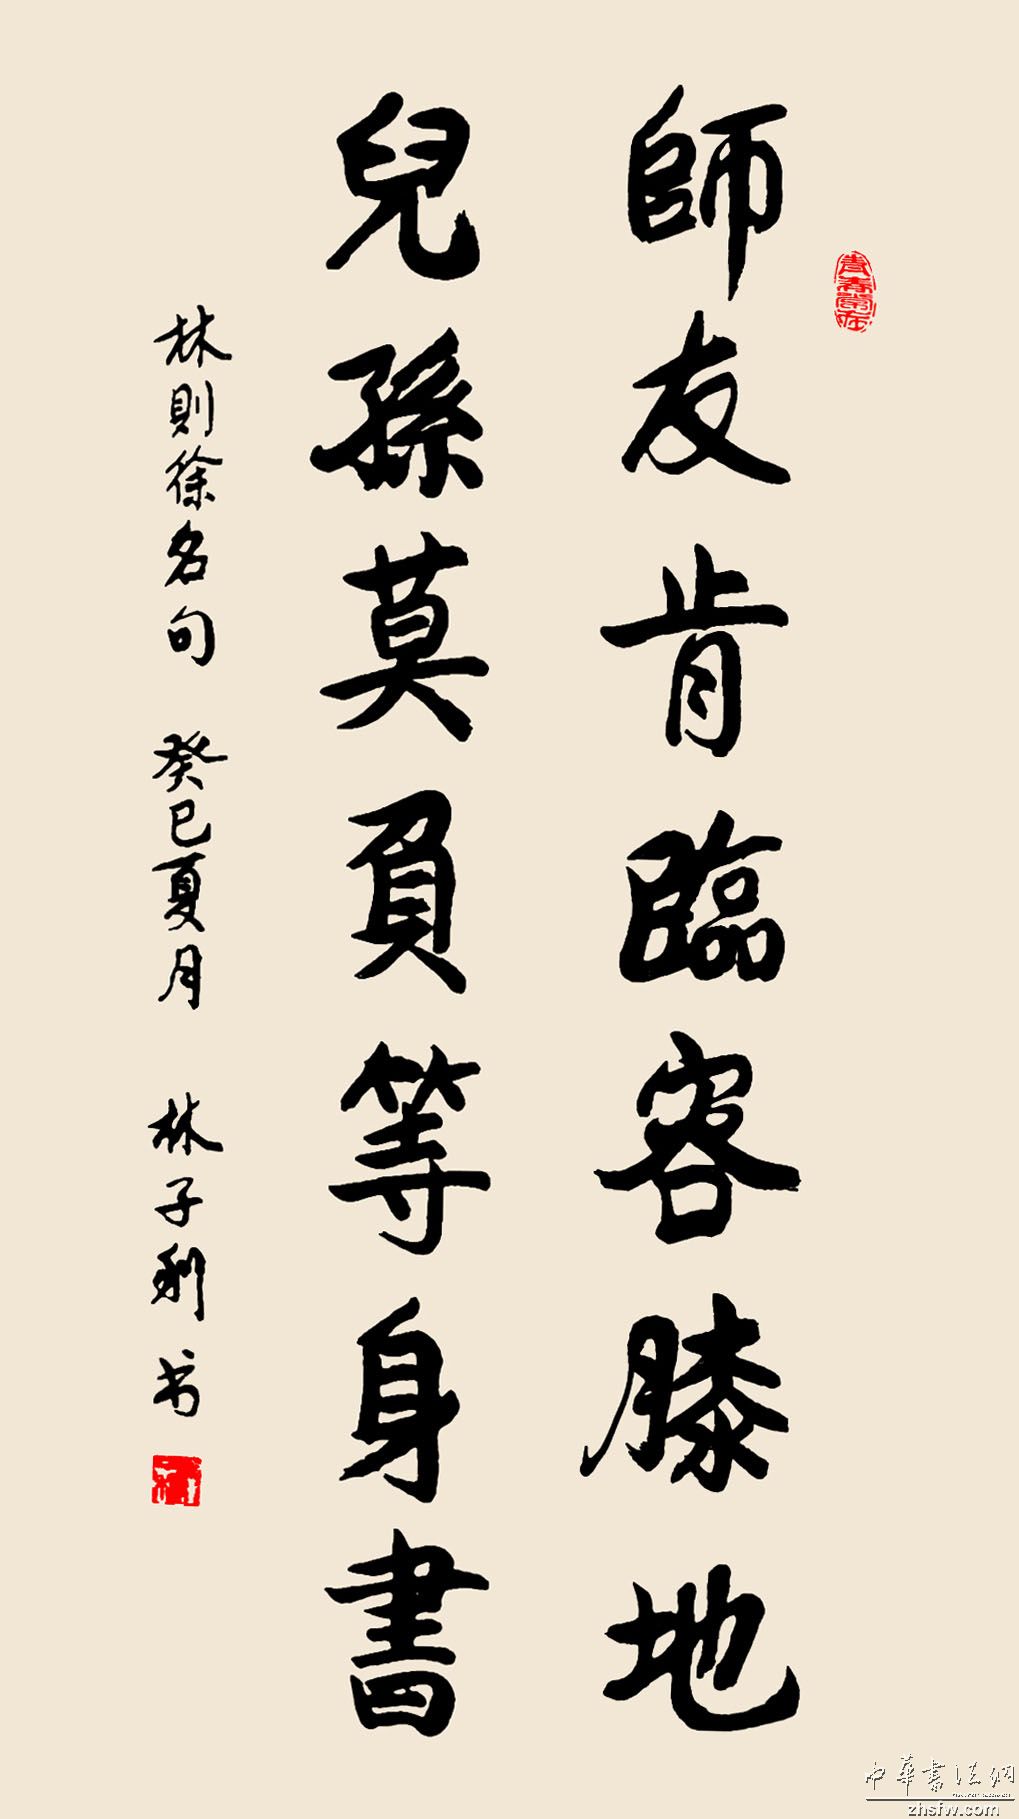 師友肯臨容膝地
兒孫莫負等身書
林則徐名句 癸巳夏月 林子利书
青春常在
中華書法網
zhsfw.com